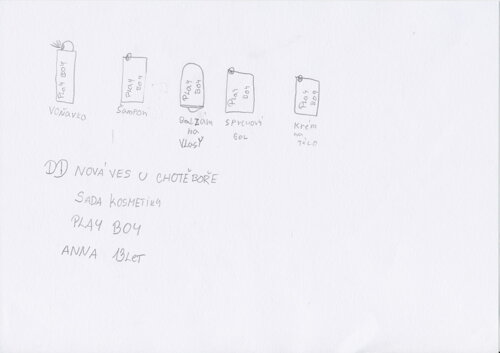 PLAY BOY
PLAY BOY
PLAY BOY
PLAY BOY
PLAY BOY
VOŇAVKA
ŠAMPON
BALZÁM
na
VLASY
SPRCHOVÍ
GEL
Krém
na
TĚLO
DD NOVÁ VES U CHOTĚBOŘE
SADA KOSMETIKY
PLAY BOY
ANNA 13 LET